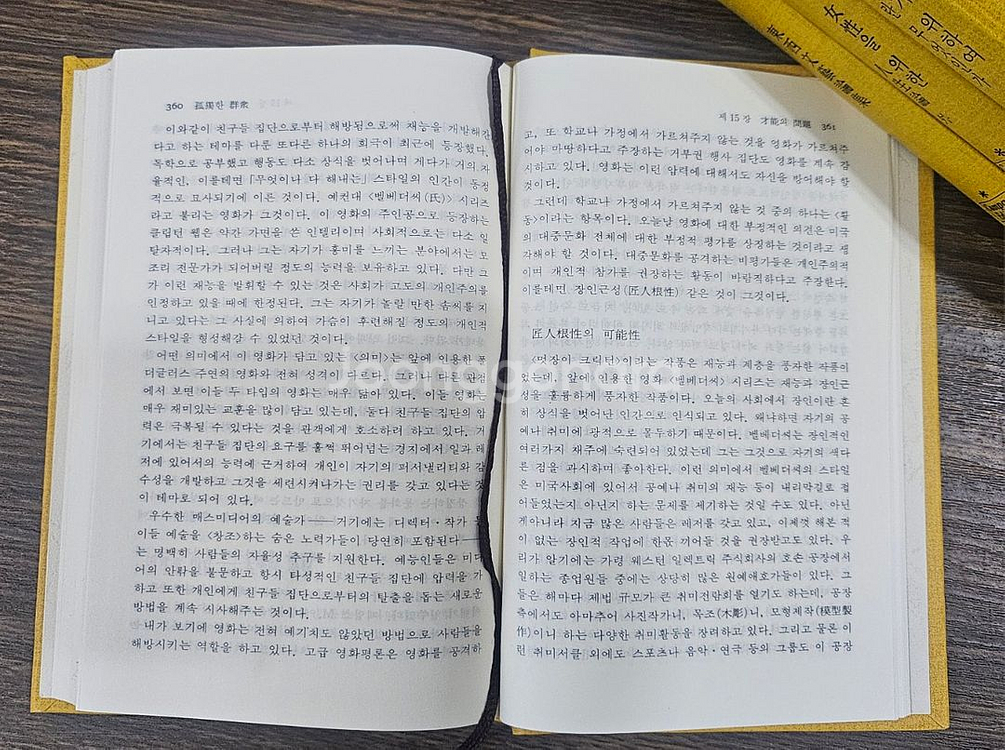 360 孤獨한 群衆
이와같이 친구들 집단으로부터 해방됨으로써 재능을 개발해간
다고 하는 테마를 다룬 또다른 하나의 희극이 최근에 등장했다.
독학으로 공부했고 행동도 다소 상식을 벗어나며 게다가 거의 자
율적인, 이를테면 「무엇이나 다 해내는」 스타일의 인간이 동정
적으로 묘사되기에 이른 것이다. 예컨대 〈벨베더씨(氏)〉 시리즈
라고 불리는 영화가 그것이다. 이 영화의 주인공으로 등장하는
클립턴 웹은 약간 가면을 쓴 인텔리이며 사회적으로는 다소 일
탈자적이다. 그러나 그는 자기가 흥미를 느끼는 분야에서는 모
조리 전문가가 되어버릴 정도의 능력을 보유하고 있다. 다만 그
가 이런 재능을 발휘할 수 있는 것은 사회가 고도의 개인주의를
인정하고 있을 때에 한정된다. 그는 자기가 놀랄 만한 솜씨를 지
니고 있다는 그 사실에 의하여 가슴이 후련해질 정도의 개인적
스타일을 형성해갈 수 있었던 것이다.
어떤 의미에서 이 영화가 담고 있는 〈의미〉는 앞에 인용한 폰
더글러스 주연의 영화와 전혀 성격이 다르다. 그러나 다른 관점
에서 보면 이들 두 타입의 영화는 매우 닮아 있다. 이들 영화는
매우 재미있는 교훈을 많이 담고 있는데, 둘다 친구들 집단의 압
력은 극복될 수 있다는 것을 관객에게 호소하려 하고 있다. 거
기에서는 친구들 집단의 요구를 훌쩍 뛰어넘는 경지에서 일과 레
저에 있어서의 능력에 근거하여 개인이 자기의 퍼서낼리티와 감
수성을 개발하고 그것을 세련시켜나가는 권리를 갖고 있다는 것
이 테마로 되어 있다.
우수한 매스미디어의 예술가——거기에는 디렉터·작가
이들 예술을 〈창조〉하는 숨은 노력가들이 당연히 포함된다——
는 명백히 사람들의 자율성 추구를 지원한다. 예능인들은 미디
어의 안팎을 불문하고 항시 타성적인 친구들 집단에 압력을 가
하고 또한 개인에게 친구들 집단으로부터의 탈출을 돕는 새로운
방법을 계속 시사해주는 것이다.
내가 보기에 영화는 전혀 예기치도 않았던 방법으로 사람들을
해방시키는 역할을 하고 있다. 고급 영화평론은 영화를 공격하
제 15 장 才能의 問題 361
고, 또 학교나 가정에서 가르쳐주지 않는 것을 영화가 가르쳐주
어야 마땅하다고 주장하는 거부권 행사 집단도 영화를 계속 감
시하고 있다. 영화는 이런 압력에 대해서도 자신을 방어해야 할
것이다.
그런데 학교나 가정에서 가르쳐주지 않는 것 중의 하나는 〈활
동〉이라는 항목이다. 오늘날 영화에 대한 부정적인 의견은 미국
의 대중문화 전체에 대한 부정적 평가를 상징하는 것이라고 생
각해야 할 것이다. 대중문화를 공격하는 비평가들은 개인주의적
이며 개인적 참가를 권장하는 활동이 바람직하다고 주장한다.
이를테면 장인근성(匠人根性) 같은 것이 그것이다.
匠人根性의 可能性
〈멋장이 크릭턴〉이라는 작품은 재능과 계층을 풍자한 작품이
었는데, 앞에 인용한 영화 〈벨베더씨〉 시리즈는 재능과 장인근
성을 훌륭하게 풍자한 작품이다. 오늘의 사회에서 장인이란 흔
히 상식을 벗어난 인간으로 인식되고 있다. 왜냐하면 자기의 공
예나 취미에 광적으로 몰두하기 때문이다. 벨베더씨는 장인적인
여러가지 재주에 숙련되어 있었는데 그는 그것으로 자기의 색다
른 점을 과시하며 좋아한다. 이런 의미에서 벨베더씨의 스타일
은 미국사회에 있어서 공예나 취미의 재능 등이 내리막길로 접
어들었는지 아닌지 하는 문제를 제기하는 것일 수도 있다. 아닌
게아니라 지금 많은 사람들은 레저를 갖고 있고, 이제껏 해본 적
이 없는 장인적 작업에 한몫 끼어들 것을 권장받고도 있다. 우
리가 알기에는 가령 웨스턴 일렉트릭 주식회사의 호손 공장에서
일하는 종업원들 중에는 상당히 많은 원예애호가들이 있다. 그
들은 해마다 제법 규모가 큰 취미전람회를 열기도 하는데, 공장
측에서도 아마추어 사진작가니, 목조(木彫)니, 모형제작(模型製
作)이니 하는 다양한 취미활동을 장려하고 있다. 그리고 물론 이
런 취미서클 외에도 스포츠나 음악·연극 등의 그룹도 이 공장
女性을 위한
위하여
Joonggonara